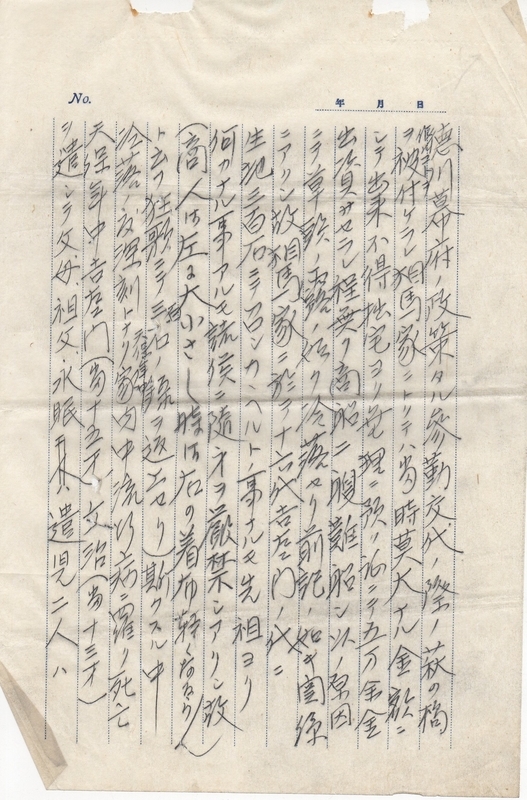 No.
年 月 日
徳川幕府ノ政策タル参勤交代ノ際ノ萩の橋
ヲ被付ケラレ相馬家ニトリテハ当時莫大ナル金額ニ
シテ出来不得拙宅ヨリ無理ニ預リ証ニテ五万金余
出資サセラレ程無ク商船二艘難船シ以ノ原因
ニテ草頭ノ露ノ如ク冷落セリ前記ノ如キ関係
ニアリシ故相馬家ニ於テ十六代吉左ヱ門ノ代ニ
生地三百石ニテ召シカヽヘルトノ事ナルモ先祖ヨリ
何カナル事アルモ諸侯ニ随身ヲ厳禁シアリシ故
(商人は左に大小さし時は右の着布軽くなるなり)
ト云フ狂歌ニテ三百石ノ録ヲ返上セリ 斯クスル中
冷落ノ度深刻トナリ家内中流行病ニ罹リ死亡
天保年中吉左ヱ門(当十五才) 文治(当十三才)
ヲ遺シテ父母、祖父、永眠 其ノ遺児二人ハ